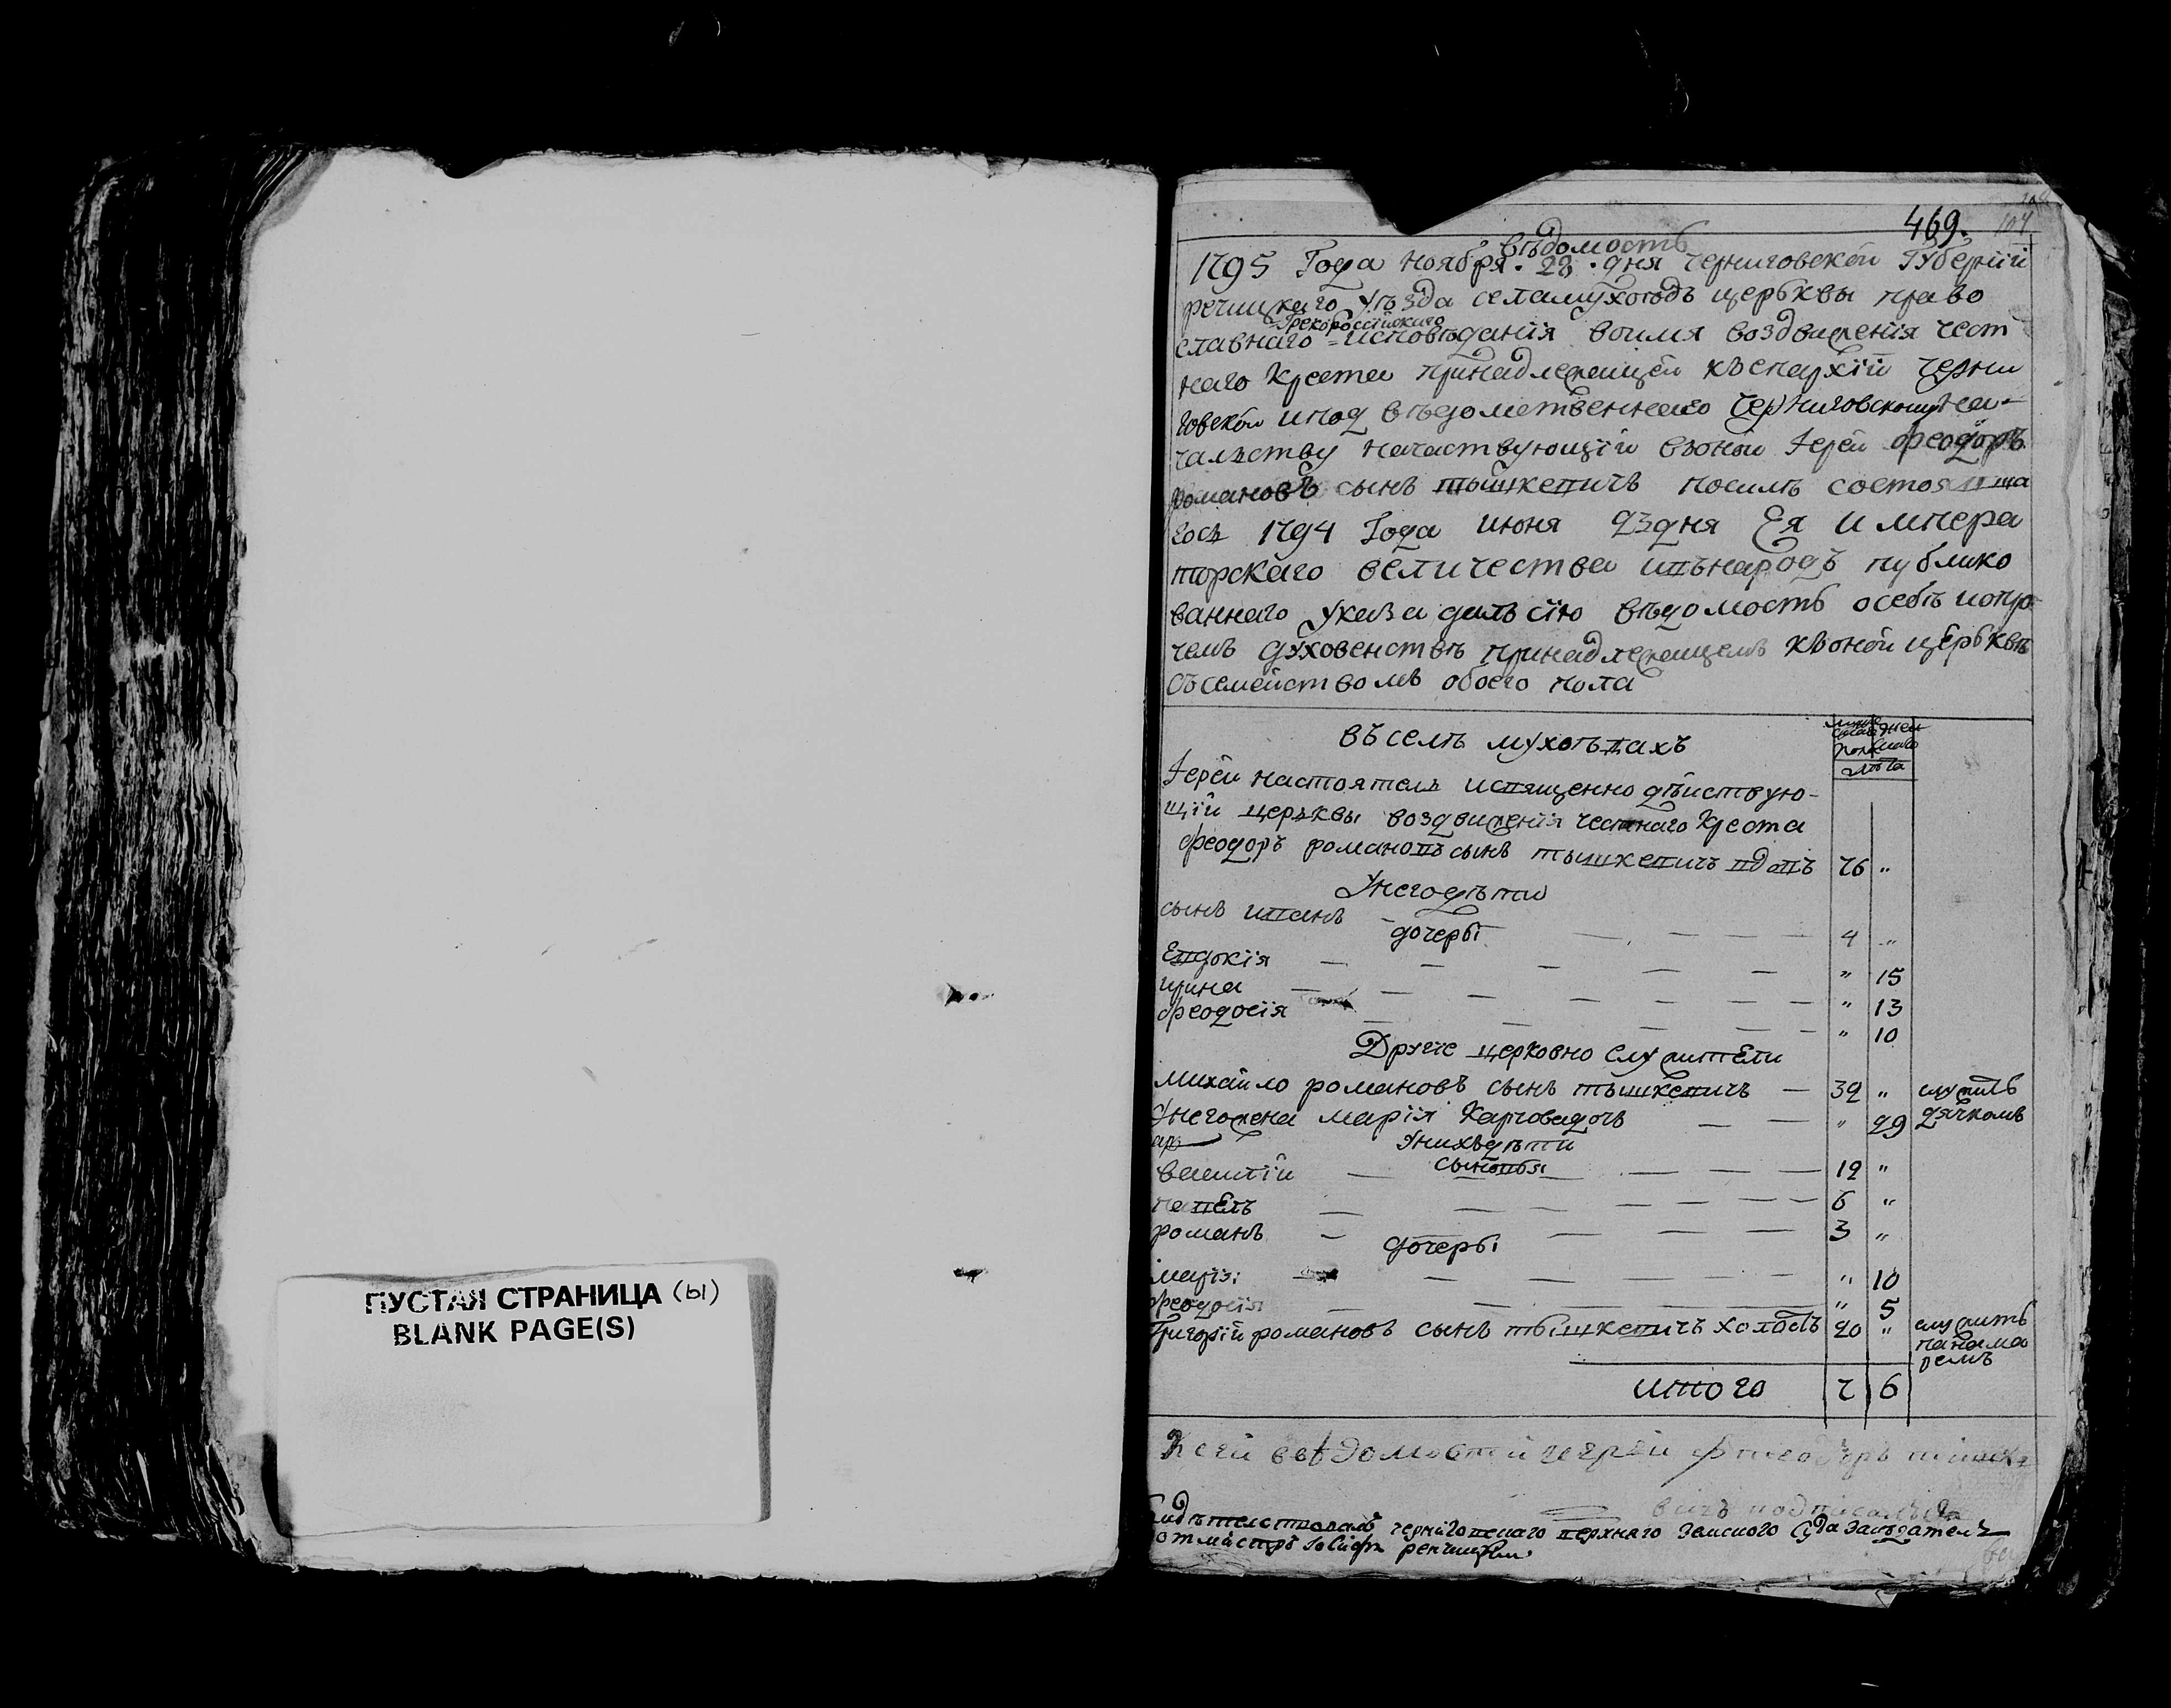 ПУСТАЯ СТРАНИЦА (ы)
BLANK PAGE(S)
469.
104
вѣдомость
1795 Года ноября . 28 . дня черниговской Губернїи
речицкаго уѣзда села мухоѣдъ церьквы право
Грекороссїйскаго
славнаго = исповѣданїя воимя воздвиженїя чест
наго Креста принадлежащей къепархїи черни
говской ипод вѣдомственнаго Черниговскому на-
чалству начаствующїй взоной Іерей феодоръ
романовъ сынъ тышкевичъ посилѣ состояв ша
гося 1794 Года июня 23 дня Ея импера
торскаго величества ивънародъ публико
ваннаго указа далъ сїю вѣдомость осебѣ ипро
чемъ духовенствѣ принадлежащемъ къоной церьквѣ
съсемействомъ обоего пола
въ селѣ мухоѣдахъ
лѣта
Іерей настоятель исвященно дѣйствую-
щїй церьквы воздвиженїя честнаго Креста
феодоръ романовъ сынъ тышкевичъ вдовъ 76 "
Унего дѣти
сынъ иванъ 4 "
дочеры
Евдокїя " 15
ирина " 13
феодосїя " 10
Другїе церковно служители
михайло романовъ сынъ тышкевичъ 32 " служитъ
дячкомъ
Унегожена марїя Карпова дочъ " 29
Унихъ дѣти
сыновья
василїй 12 "
павелъ 6 "
романъ 3 "
дочеры
марїя " 10
феодосїя " 5
Григорїй романовъ сынъ тышкевичъ холостъ 20 " служитъ
панама
ремъ
итого 7 6
К сей вѣдомости иерей феодоръ тишке
вичъ подписался
Свидѣтелствовалъ чернїговскаго верхняго земского суда засѣдатель
ротмистръ Іосифъ